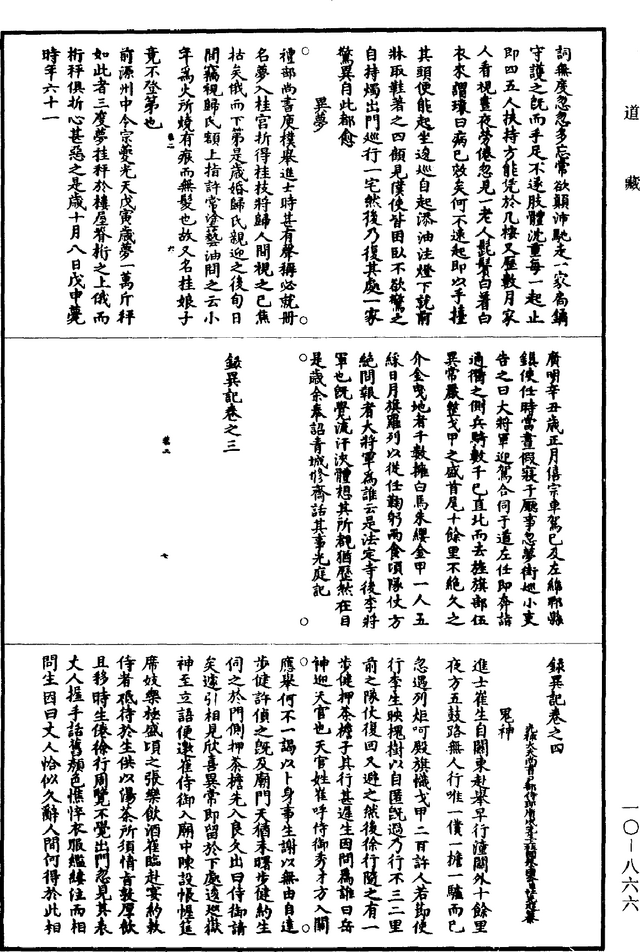 道藏
詞無度忽忽多忘常欲顛沛馳走一家扃鏁
守護之既而手足不遂肢體沈重每一起止
即四五人扶持方能凭於几榻又歷數月家
人看視晝夜勞倦忽見一老人髭鬢白著白
衣來謂瓌曰病已效矣何不速起即以手撞
其頭便能起坐逡巡自起添油注燈下就前
牀取鞋著之四顧見僕使皆困臥不欲驚之
自持燭出門巡行一宅然後乃復其處一家
驚異自此都愈
異夢
禮部尚書庾樸舉進士時甚有聲稱必就册
名夢入桂宮折得桂枝將歸人間視之已焦
枯矣俄而下第是歲婚歸氏親迎之後旬日
間竊視歸氏額上搭許常塗藝油問之云小
年為火所燒有痕而無髮也故又名桂娘子
竟不登第也
前源州中令宗夔光天戊寅歲夢一萬斤秤
如此者三度夢挂秤於樓屋脊桁之上俄而
桁秤俱折心甚惡之是歲十月八日戊申薨
時年六十一
廣明辛丑歲正月僖宗車駕已及左緜鄄縣
鎮使任時當晝假寢于廳事忽夢街巡小吏
告之曰大將軍迎駕合伺于道左任即奔詣
通衢之側兵騎數千已直北而去旌旗部伍
異常嚴整戈甲之盛首尾十餘里不絕久之
介金曳地者千數擁白馬朱纓金甲一人五
綵日月旗羅列以從任鞠躬兩食頃隊仗方
絕問報者大將軍為誰云是法定寺後李將
軍也既覺流汗浹體想其所覩猶歷然在目
是歲余奉詔青城修齋話其事光庭記
錄異記卷之三
錄異記卷之四
鬼神
進士崔生自關東赴舉早行潼關外十餘里
夜方五鼓路無人行唯一僕一擔一驢而已
忽遇列炬呵殿旗幟戈甲二百許人若節使
行李生映槐樹以自匿既過乃行不三二里
前之隊仗復回又避之然後徐行隨之有一
步健押茶檐子其行甚遲生因問為誰曰岳
神迎天官也天官姓崔呼侍御秀才方入關
應舉何不一謁以卜身事生謝以無由自達
步健許偵之既及廟門天猶未曙步健約生
伺之於門側押茶檐先入良久出曰侍御請
矣遽引相見欣喜異常即留於下處逡巡嶽
神至立語便邀崔侍御入廟中陳設帳幄筵
席妓樂極盛頃之張樂飲酒崔臨赴宴約敕
侍者祗待於生供以湯茶所須情旨敦厚飲
且移時生倦徐行周覽不覺出門忽見其表
丈人握手話舊顏色憔悴衣服繿縷泣而相
問生因曰丈人恰似久辭人間何得於此相
一〇-八六六